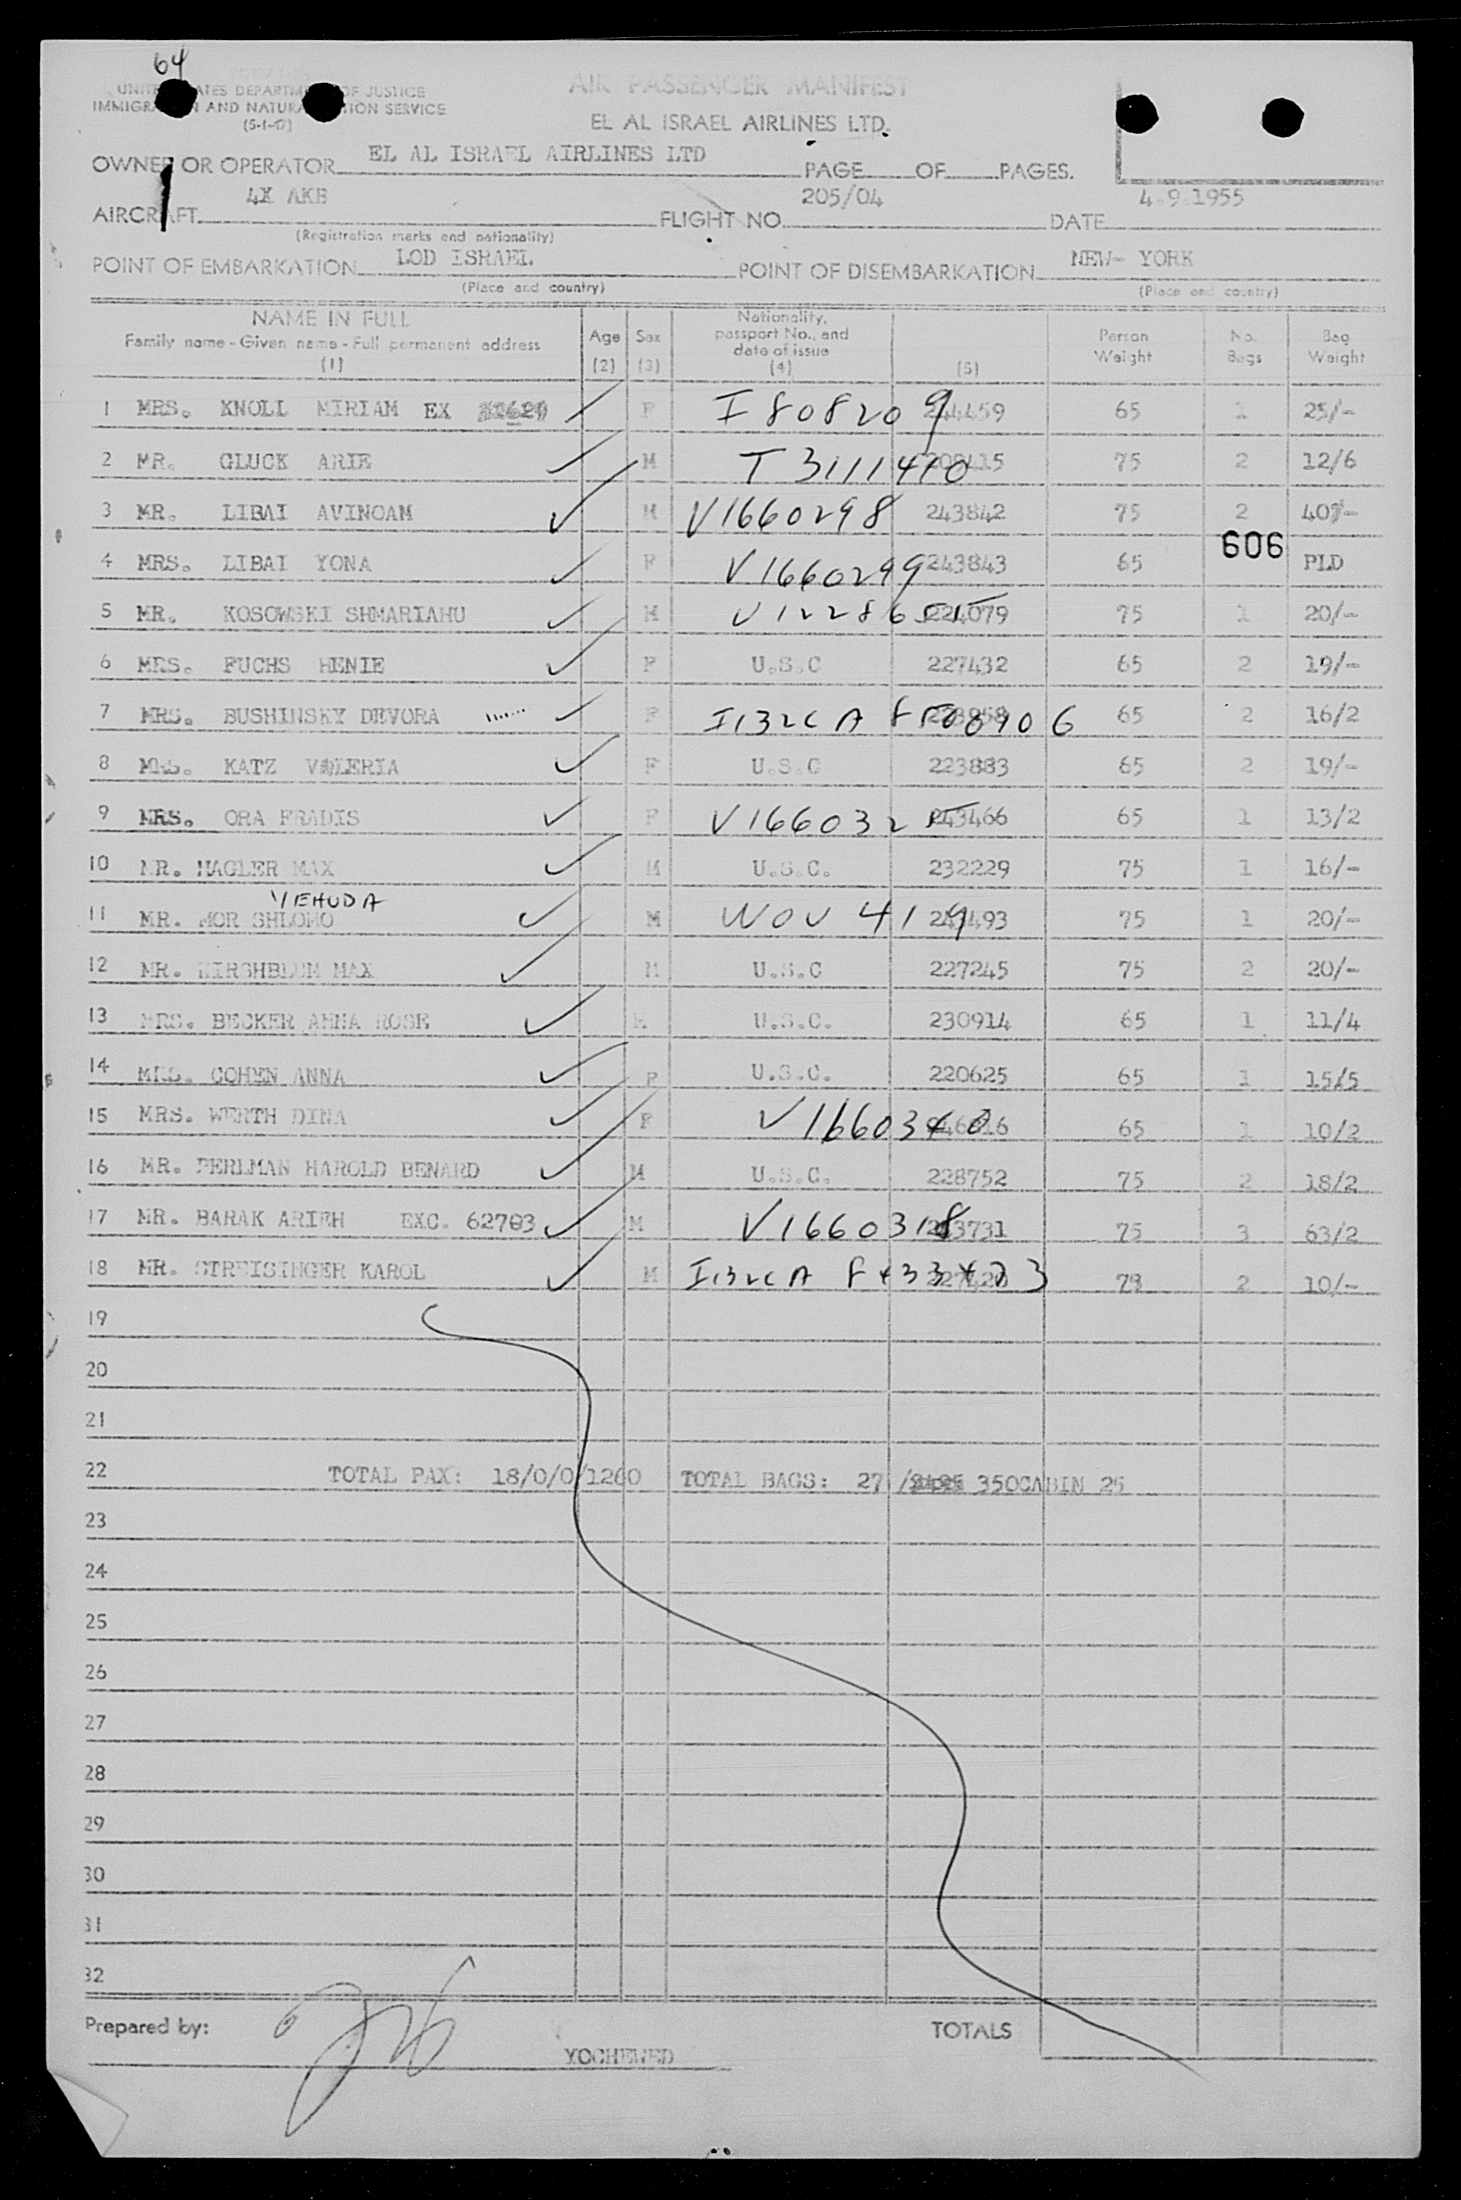 64
AIR PASSENGER MANIFEST
UNITED STATES DEPARTMENT OF JUSTICE
IMMIGRATION AND NATURALIZATION SERVICE
EL AL ISRAEL AIRLINES LTD.
OWNER OR OPERATOR EL AL ISRAEL AIRLINES LTD PAGE OF PAGES.
AIRCRAFT 4X AKB FLIGHT NO. 205/04 DATE 4.9.1955
(Registration marks and nationality)
POINT OF EMBARKATION LOD ISRAEL POINT OF DISEMBARKATION NEW-YORK
(Place and country) (Place and country)
NAME IN FULL Age Sex Nationality, passport No., and date of issue Person Weight No. Bags Bag Weight
Family name - Given name - Full permanent address
(1) (2) (3) (4) (5)
1 MRS. KNOLL MIRIAM EX F I 808209 65 1 25/-
2 MR. GLUCK ARIE M T 3111440 75 2 12/6
3 MR. LIBAI AVINOAM M V1660298 243842 75 2 40/-
606
4 MRS. LIBAI YONA F V1660299 243843 65 PLD
5 MR. KOSOWSKI SHMARIAHU M 224079 75 1 20/-
6 MRS. FUCHS HENIE F U.S.C 227432 65 2 19/-
7 MRS. BUSHINSKY DEVORA F I132CA 65 2 16/2
8 MRS. KATZ VALERIA F U.S.C 223883 65 2 19/-
9 MRS. ORA FRADIS F V1660325 243466 65 1 13/2
10 MR. HAGLER MAX M U.S.C. 232229 75 1 16/-
YEHUDA
11 MR. MOR SHLOMO M WOV 419 75 1 20/-
12 MR. KIRSHBLUM MAX M U.S.C 227245 75 2 20/-
13 MRS. BECKER ANNA ROSE U.S.C. 230914 65 1 11/4
14 MRS. COHEN ANNA F U.S.C. 220625 65 1 15/5
15 MRS. WERTH DINA F 65 1 10/2
16 MR. PERLMAN HAROLD BENARD M U.S.C. 228752 75 2 18/2
17 MR. BARAK ARIEH EXC. 62783 M V1660318 75 3 63/2
18 MR. STREISINGER KAROL M I132CA 2 10/-
19
20
21
22 TOTAL PAX: 18/0/0/1260 TOTAL BAGS: 27 / 350CABIN 25
23
24
25
26
27
28
29
30
31
32
Prepared by: TOTALS
YOCHEWED